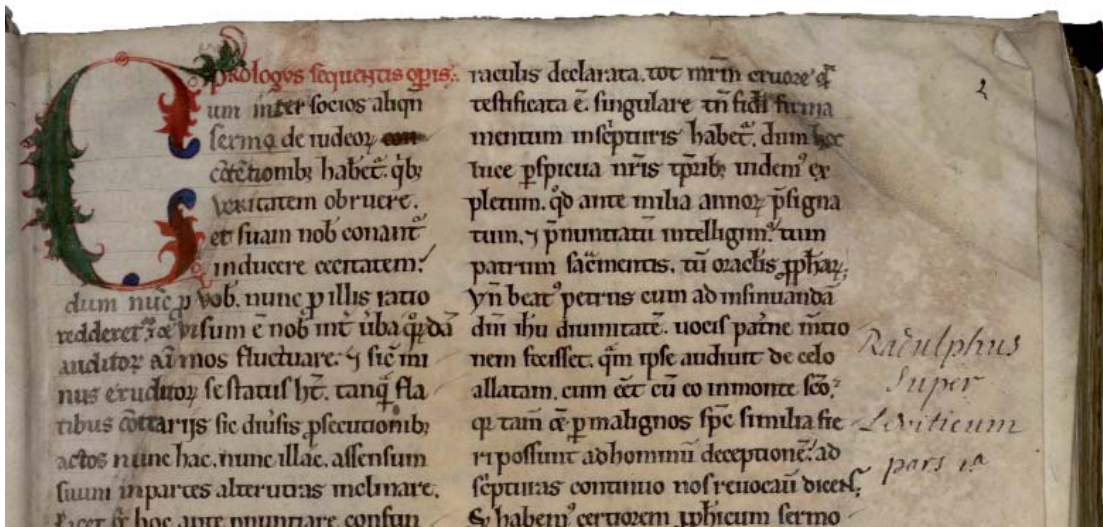 prologus sequentis opis.
Cum inter socios aliqn
sermo de iudeoꝝ con
cotetionibꝫ habet. qbꝫ
veritatem obruere.
et suam nob conant
inducere cecitatem.
dum nuc ꝓ vob. nunc ꝓ illis ratio
redderet. visum e nob int uba
auditoꝝ aimos fluctuare. ⁊ sic mi
nus eruditoꝝ se status ht. tanq fla
tibus cottarijs sic diusis ꝑsecutionibꝫ
actos nunc hac. nunc illac. assensum
suum in partes alterutras inclinare.
hoc ante pnuntiare
raculis declarata. tot mrm cruore
testificata e. singulare tn fidi firma
mentum inscpturis habet. dum hoc
luce ꝑspicua nris tpribꝫ videm ex
pletum. qd ante milia annoꝝ psigna
tum. ⁊ pnuntiatu intelligim. tum
patrum sacmentis. tu oraclis ꝓphaꝝ.
Vn beat petrus cum ad insinuanda
dni ihu diuinitate. uocis patne mtio
nem fecisset. qm ipse audiuit de celo
allatam. cum eet cu eo inmonte sco.
qꝛ tam ꝑ malignos spc similia fie
ri possunt ad hominu deceptione. ad
scpturas continuo nos reuocau dicens.
habem certiorem ꝓphicum sermo
2
Radulphus
Super
Leviticum
pars 1a